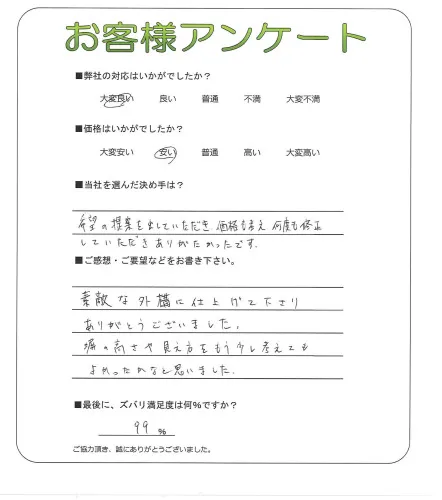 お客様アンケート
■弊社の対応はいかがでしたか？
大変良い 良い 普通 不満 大変不満
■価格はいかがでしたか？
大変安い 安い 普通 高い 大変高い
■当社を選んだ決め手は？
希望の提案を出していただき、価格も考え 何度も修正
していただきありがたかったです。
■ご感想・ご要望などをお書き下さい。
素敵な外構に仕上げて下さり
ありがとうございました。
塀の高さや見え方をもう少し考えても
よかったかなと思いました。
■最後に、ズバリ満足度は何%ですか？
99 %
ご協力頂き、誠にありがとうございました。